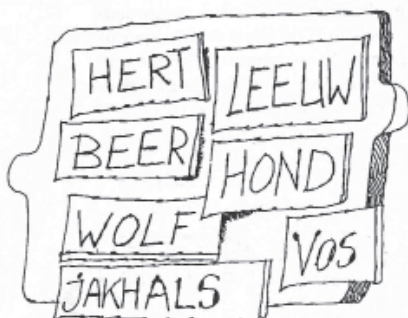 HERT
LEEUW
BEER
HOND
WOLF
VOS
JAKHALS